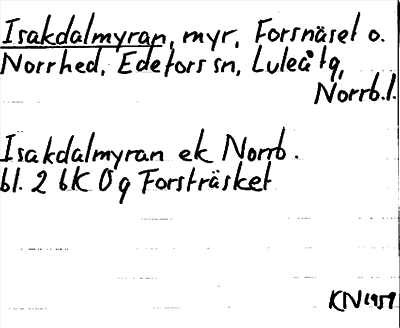 Isakdalmyran, myr, Forsnäset o.
Norrhed, Edefors sn, Luleå tg,
Norrb.l.
Isakdalmyran ek Norrb.
bl. 2 bK Ög Forsträsket
KN 1959